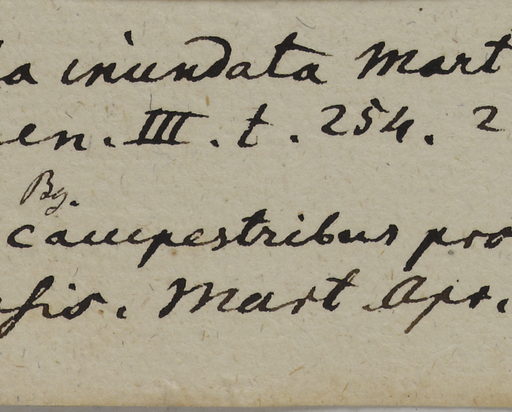 la inundata Mart
en. III. t. 254. 2
Bg.
campestribus pro
Mart Apr.